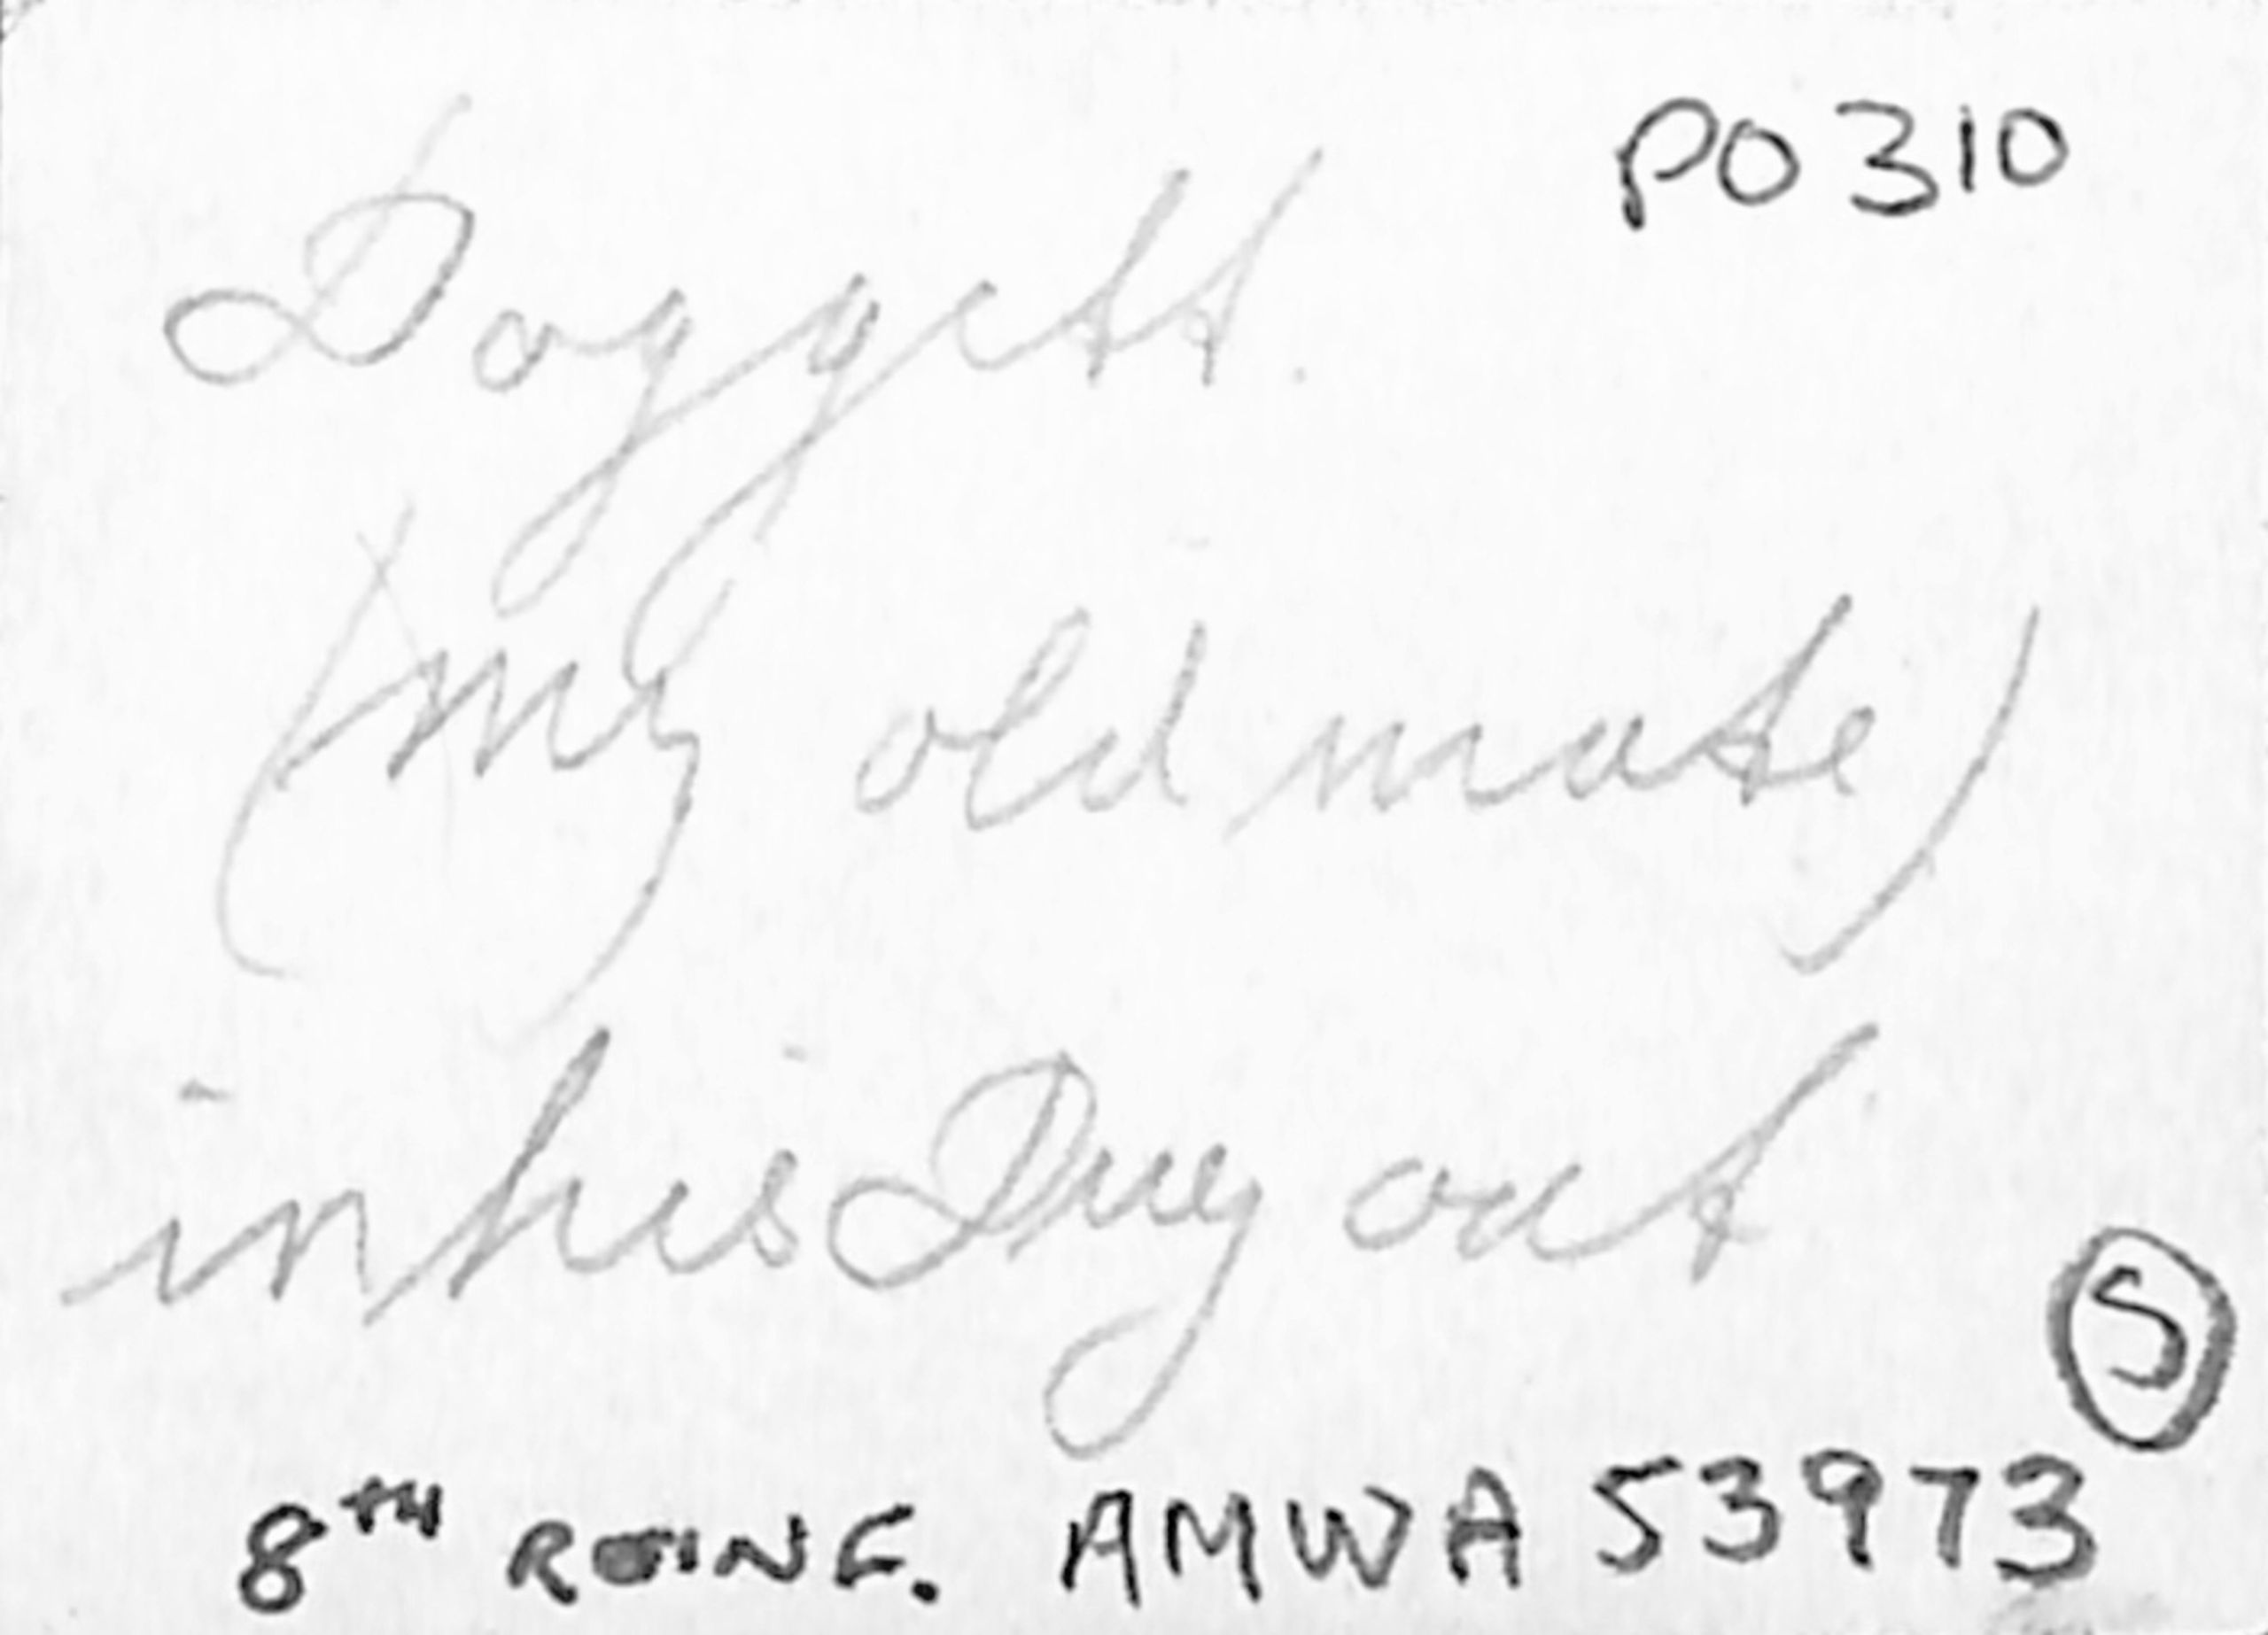 PO310
Doggett.
(my old mate)
in his Dug out
S
8TH REINF. AMWA 53973